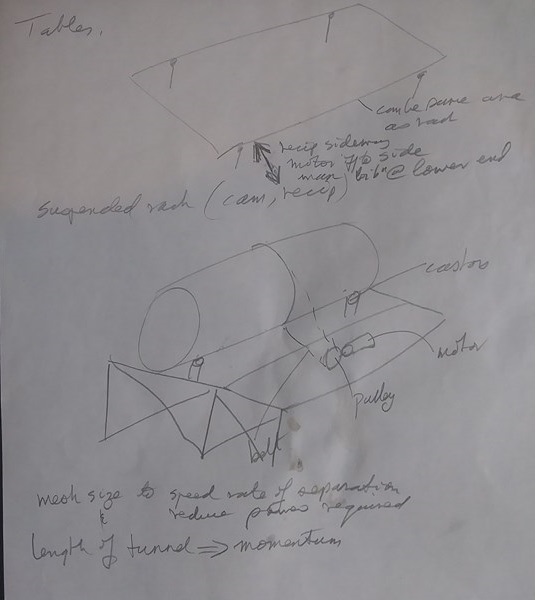 Tables.
can be same area
as rack
recip sideways
motor @ side
max @ lower end
suspended rack (cam, recip)
castors
motor
pulley
belt
mesh size to speed rate of separation
& reduce power required
length of tunnel => momentum